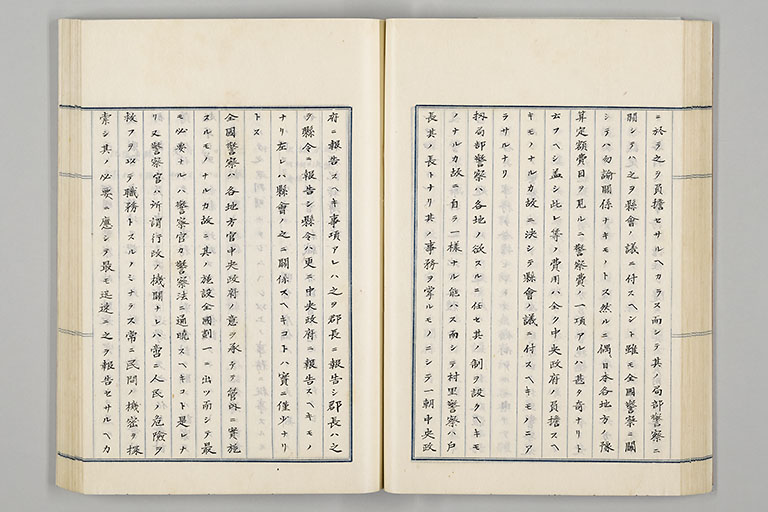 ニ於テ之ヲ負擔セサルヘカラス而シテ其ノ局部警察ニ
關シテハ之ヲ縣會ノ議ニ付スヘシト雖モ全國警察ニ關
シテハ勿論關係ナキモノトス然ルニ偶日本各地方ノ豫
算定額費目ヲ見ルニ警察費ノ一項アルハ甚タ奇ナリト
云フヘシ蓋シ此レ等ノ費用ハ全ク中央政府ノ負擔スヘ
キモノナルカ故ニ决シテ縣會ノ議ニ付スヘキモノニア
ラサルナリ
扨局部警察ハ各地ノ欲スルニ任セ其ノ制ヲ設クヘキモ
ノナルカ故ニ自ラ一様ナル能ハス而シテ村里警察ハ戸
長其ノ長トナリ其ノ事務ヲ掌ルモノニシテ一朝中央政
府ニ報告スヘキ事項アレハ之ヲ郡長ニ報告シ郡長ハ之
ヲ縣令ニ報告シ縣令ハ更ニ中央政府ニ報告スヘキモノ
ナリ左レハ縣會ノ之ニ關係スヘキコトハ實ニ僅少ナリ
トス
全國警察ハ各地方官中央政府ノ意ヲ承テ管内ニ實施
スルモノナルカ故ニ其ノ施設全國劃一ニ出ツ而シテ最
モ必要ナルハ警察官カ警察法ニ通曉スヘキコト是レナ
リ又警察官ハ所謂行政ノ機關ナレハ啻ニ人民ノ危險ヲ
救フヲ以テ職務トスルノミナラス常ニ民間ノ機密ヲ探
索シ其ノ必要ニ應シテ最モ迅速ニ之ヲ報告セサルヘカ